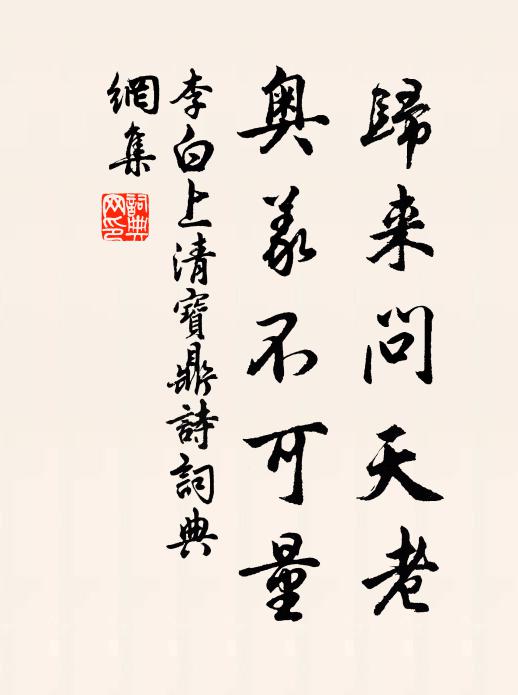 歸来問天老
奧義不可量
李白上清寶鼎詩詞典
網集
詞典網印